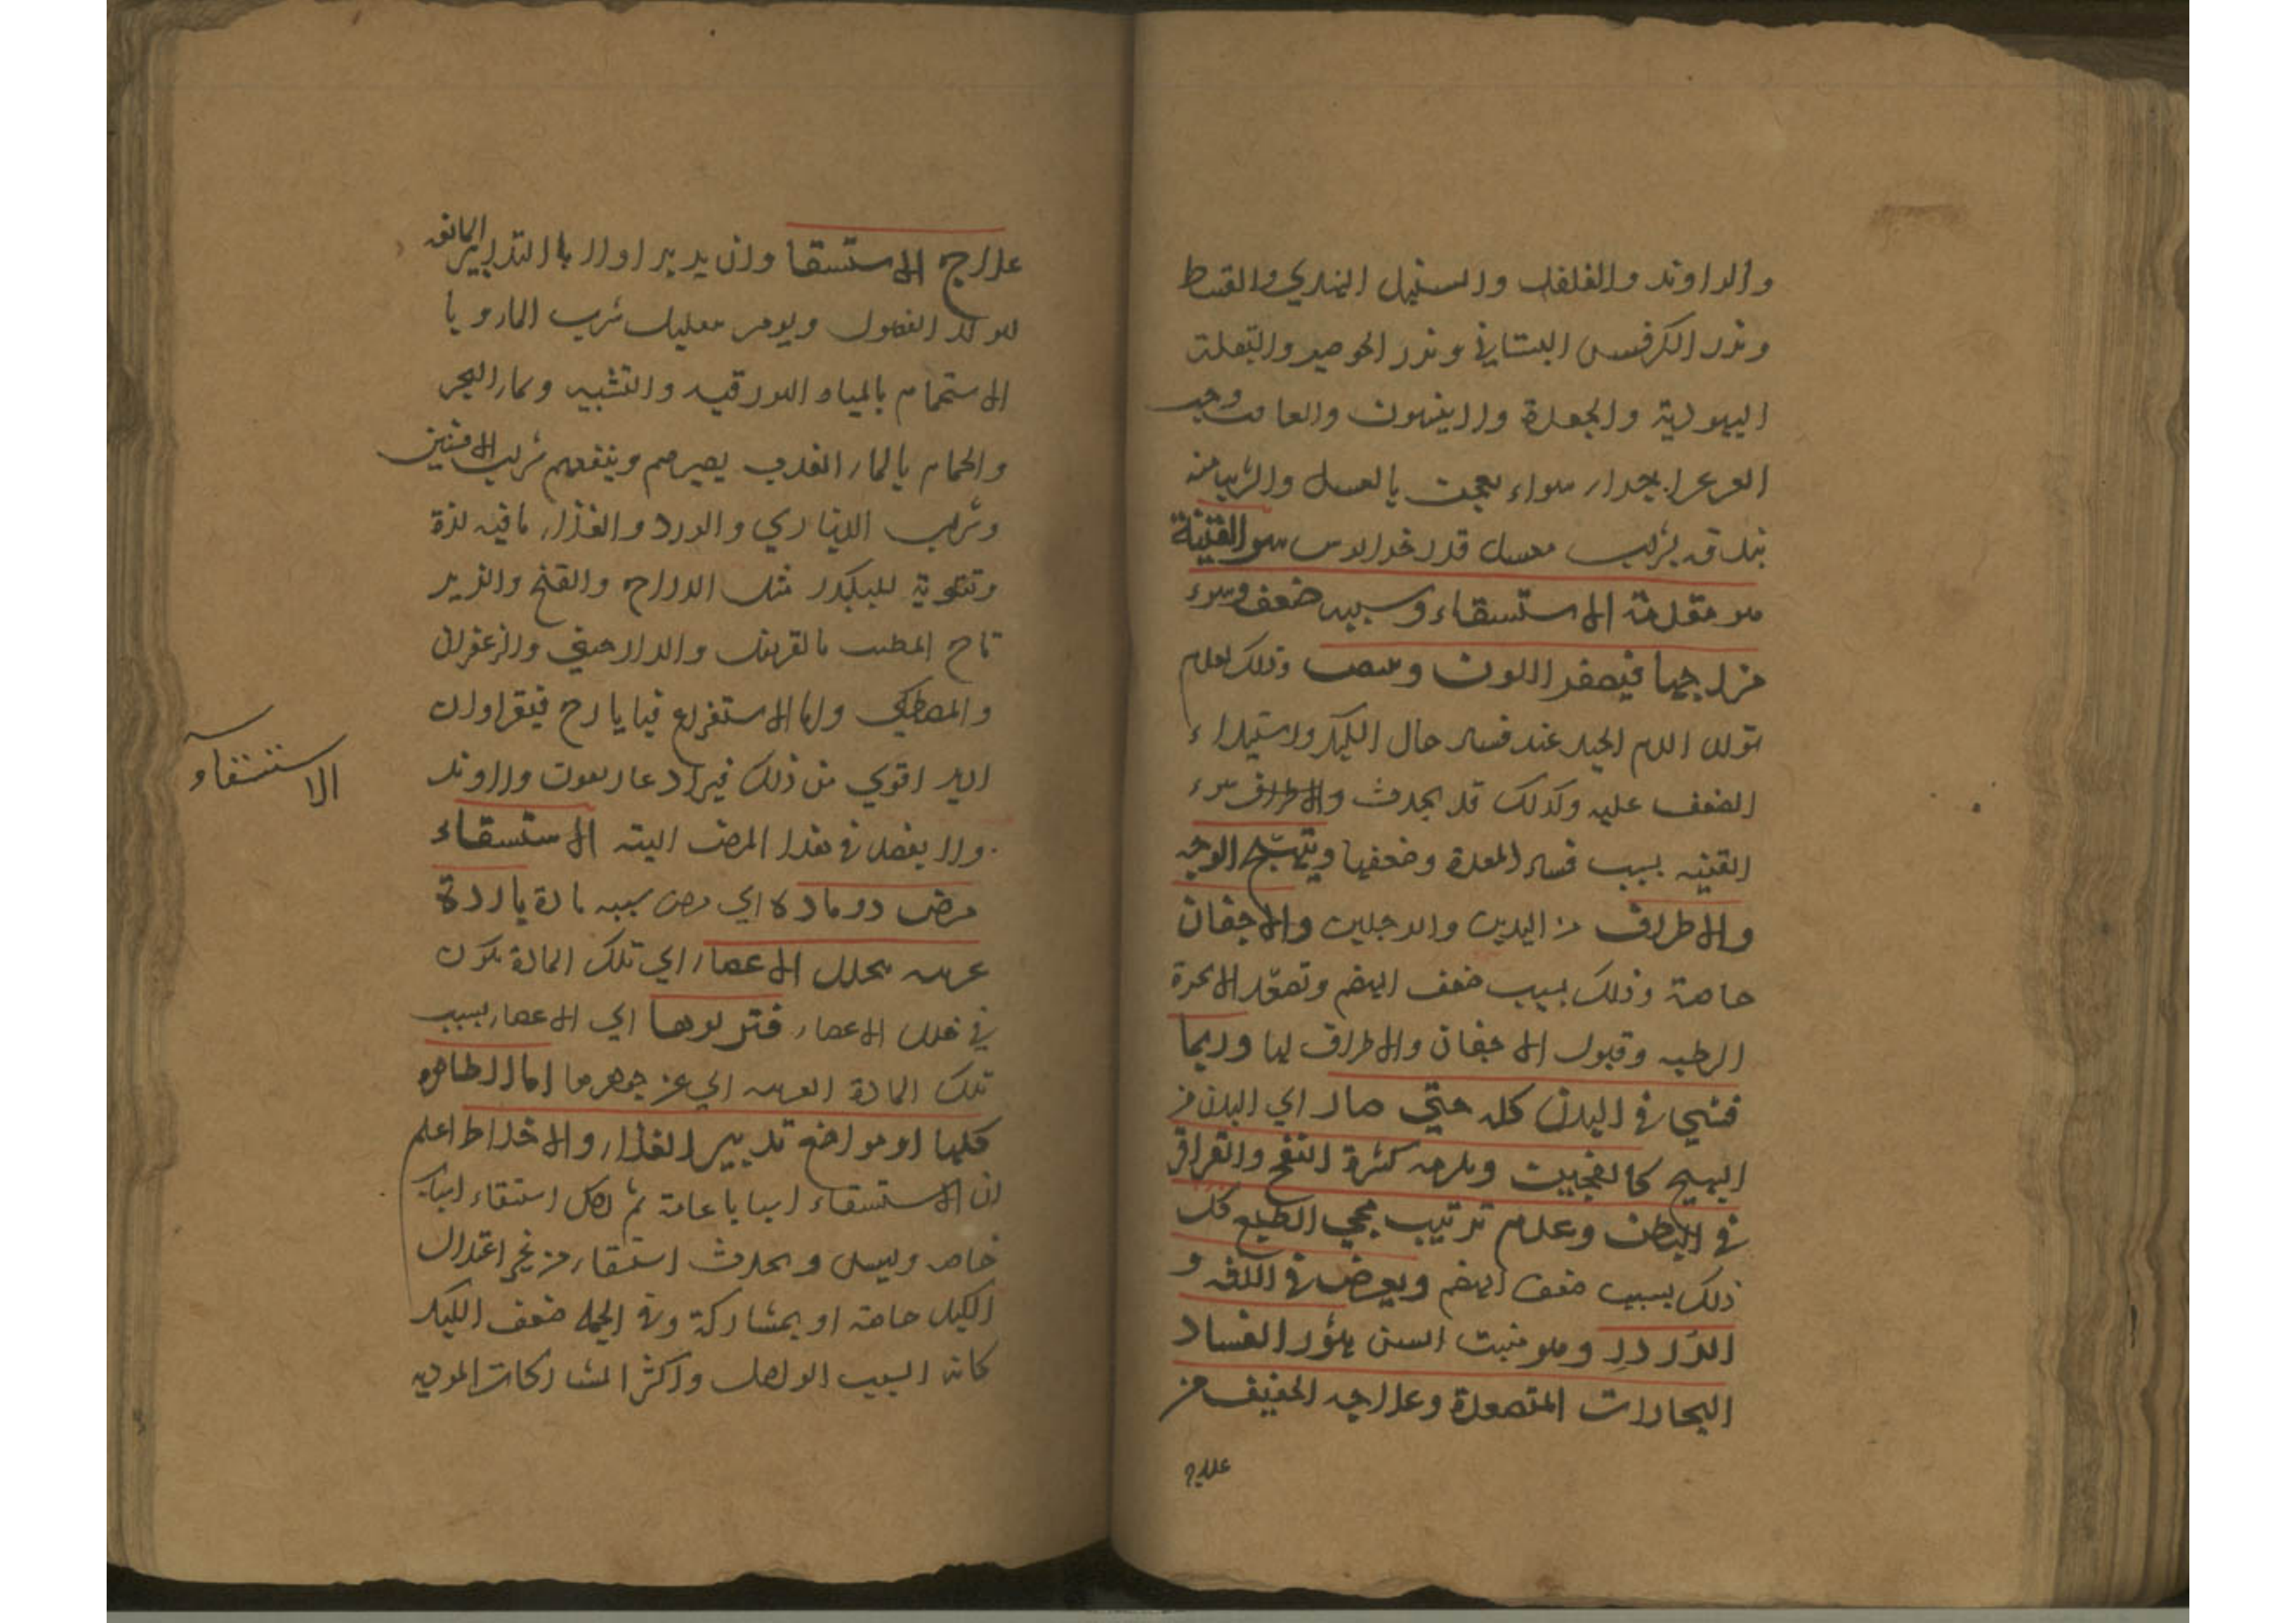 والراوند والفلفل والسنبل الهندي والقسط
وبذر الكرفس البستاني وبذر
اليهودية والجعدة والافيثمون
العرعر بعجن بالعسل والشربة منه
بندقة بشراب معسل قدر سوء القنية
هو مقدمة الاستسقاء وسببه ضعف وسوء
مزاجها فيصفر اللون و وذلك لعدم
تولد الدم الجيد عند فساد حال الكبد واستيلاء
الضعف عليه وكذلك قد يحدث والاطراف سوء
القنيه بسبب فساد المعدة وضعفها ويتهيج الوجه
والاطراف من اليدين والرجلين والاجفان
خاصة وذلك بسبب ضعف الهضم وتصعد الابخرة
الرطبه وقبول الاجفان والاطراف لها وربما
فشي في البدن كله حتي صار اي البدن من
التهيج كالعجين ويلزمه كثرة النفخ والقراقر
في البطن وعدم ترتيب مجي الطبع كل
ذلك بسبب ضعف الهضم ويعرض في اللثه و
الدردر وهو منبت السن بثور لفساد
البخارات المتصعدة وعلاجه الخفيف من
علاج
علاج الاستسقا وان يدبر اولا بالتدابير المانعه
لتولد الفضول ويومر بتقليل شرب الماء و يا
الاستحمام بالمياه البورقيه والشبيه وبماء البحر
والحمام بالماء العذب يضرهم وينفعهم شراب الافسنتين
وشراب الديناري والورد والغذاء ما فيه لذة
وتقوية للكبد مثل الدراج والقبج والزير
باج المطيب بالقرنفل والدارصيني والزعفران
والمصطكي واما الاستفراغ فبايارج فيقرا وان
اريد اقوي من ذلك فيزاد غاريقون وراوند
ولا يفصد في هذا المرض البته الاستسقاء
مرض ذو مادة اي مرض سببه مادة باردة
غريبه تتخلل الاعضاء اي تلك المادة تكون
في خلل الاعضاء فتربو بها اي الاعضاء بسبب
تلك المادة الغريبه اي عن جوهرها اما الظاهره
كلها او مواضع تدبير الغذاء والاخلاط اعلم
ان الاستسقاء اسبابا عامة ثم لكل استسقاء اسباب
خاصه وليس يحدث استسقاء من غير اعتلال
الكبد خاصة او بمشاركة وفي الجمله ضعف الكبد
كانه السبب الواصل واكثر المشاركات الموديه
الاستسقاء